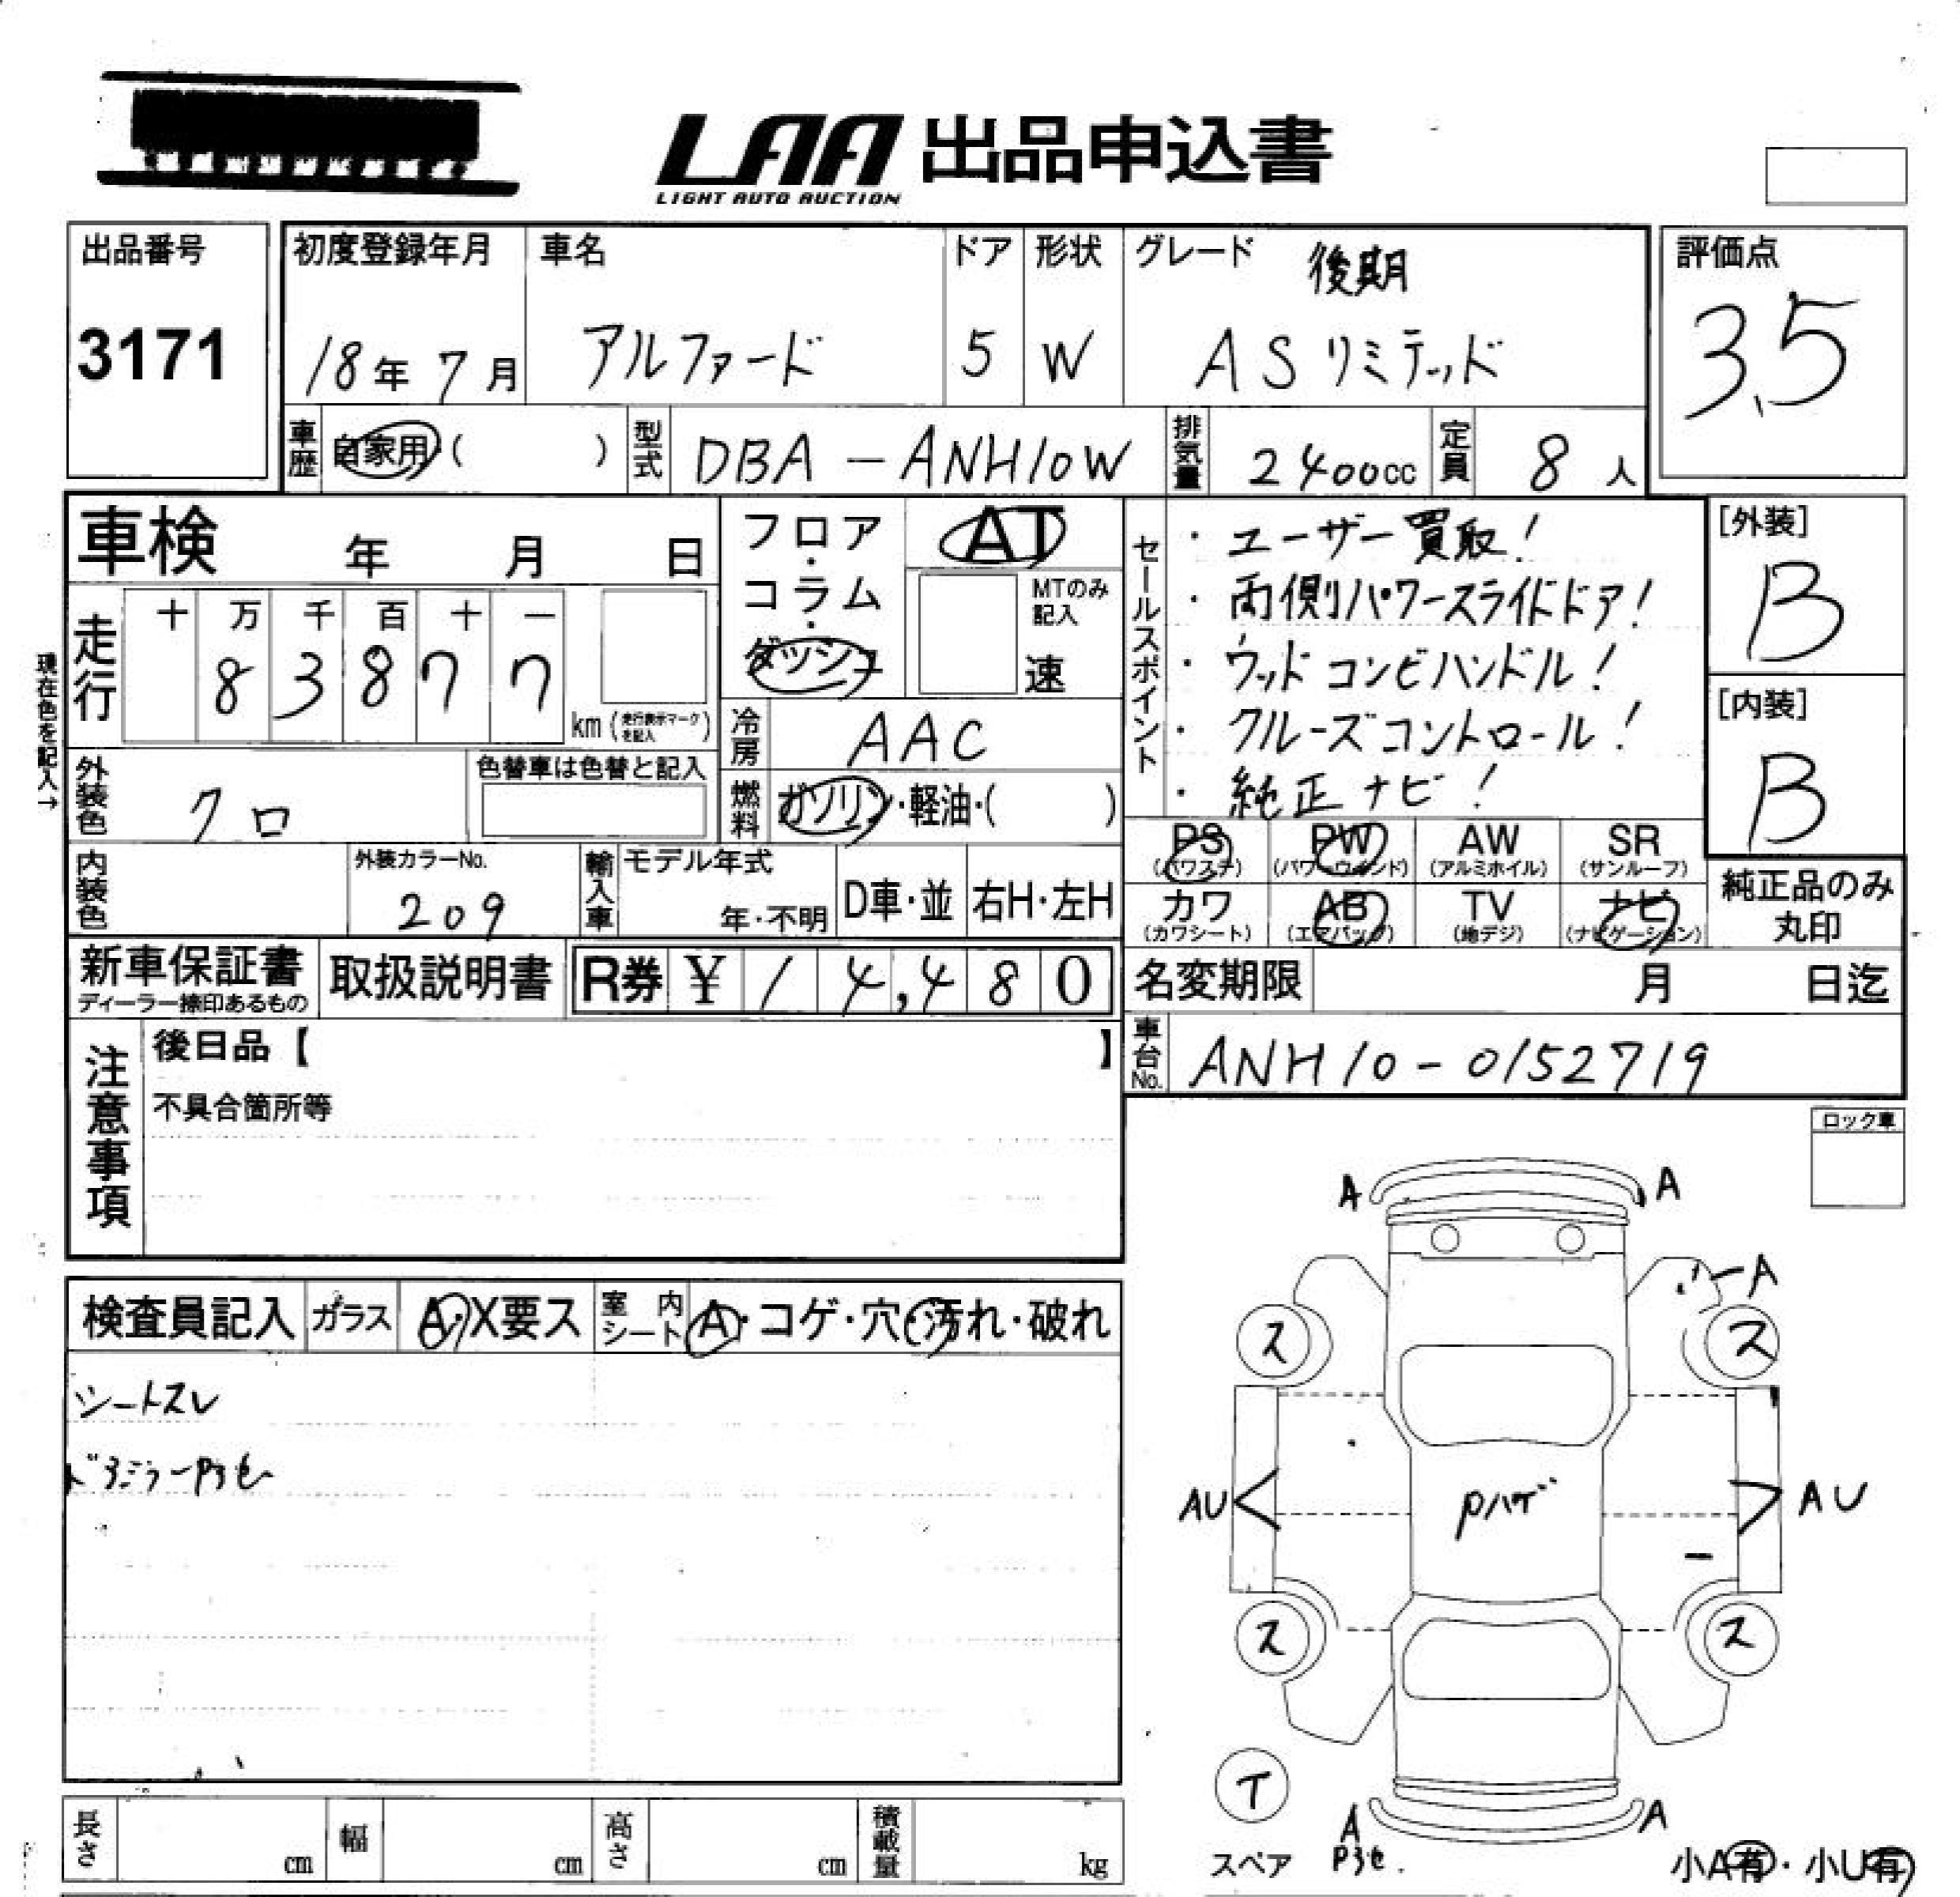 LAA 出品申込書
LIGHT AUTO AUCTION
出品番号
3171
初度登録年月
18年 7月
車名
アルファード
ドア
5
形状
W
グレード 後期
ASリミテッド
評価点
3.5
車歴 自家用 ( )
型式 DBA-ANH10W
排気量 2400cc
定員 8人
車検 年 月 日
フロア・コラム・ダッシュ
AT
MTのみ記入
速
走行
十 万 千 百 十 一
8 3 8 7 7
km (走行表示マークを記入)
現在色を記入→
冷房 AAC
燃料 ガソリン・軽油・( )
外装色 クロ
色替車は色替と記入
内装色
外装カラーNo.
209
輸入車
モデル年式
年・不明
D車・並
右H・左H
セールスポイント
・ユーザー買取!
・両側パワースライドドア!
・ウッドコンビハンドル!
・クルーズコントロール!
・純正ナビ!
[外装]
B
[内装]
B
PS (パワステ)
PW (パワーウインド)
AW (アルミホイル)
SR (サンルーフ)
カワ (カワシート)
AB (エアバッグ)
TV (地デジ)
ナビ (ナビゲーション)
純正品のみ
丸印
新車保証書
ディーラー捺印あるもの
取扱説明書
R券 ¥ 14,480
名変期限 月 日迄
車台No. ANH10-0152719
注意事項
後日品【 】
不具合箇所等
ロック車
検査員記入
ガラス A・X要ス
室内シート A・コゲ・穴・汚れ・破れ
シートスレ
A A
A
ス ス
AU Pハゲ AU
ス ス
T
スペア
A A
小A有・小U有
長さ cm
幅 cm
高さ cm
積載量 kg